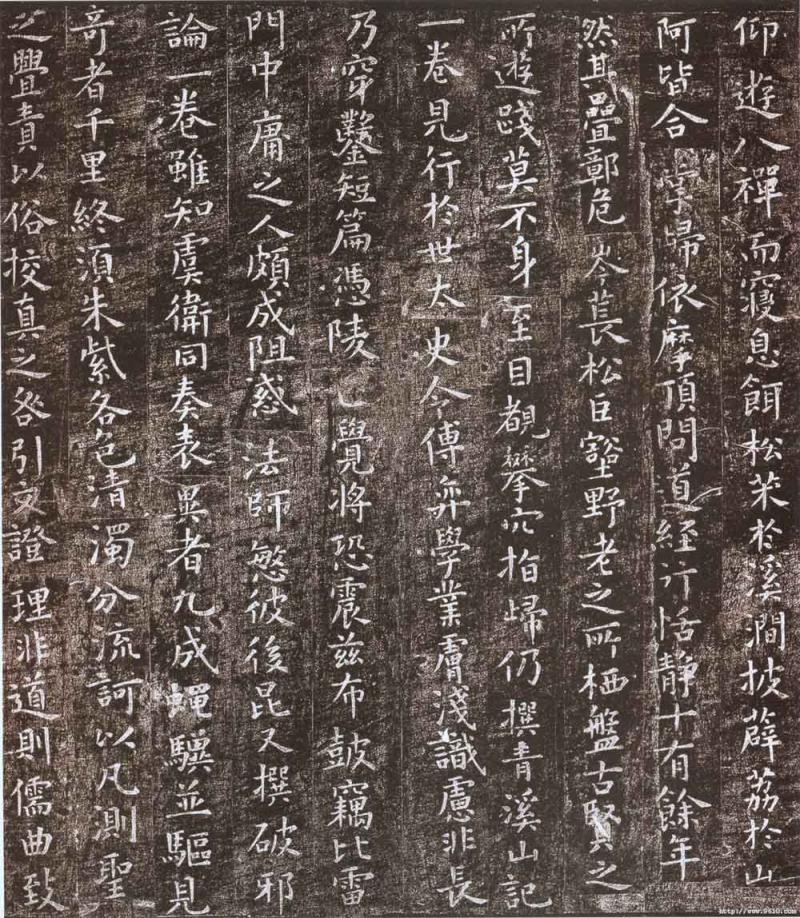 仰遊八禪而寢息餌松朮於溪澗披薜荔於山
阿皆合掌歸依摩頂問道經行恬靜十有餘年
然其疊鄣危岑萇松巨壑野老之所栖盤古賢之
所遊踐莫不身至目覩攀穴指歸仍撰青溪山記
一卷見行於世太史令傅弈學業膚淺識慮非長
乃穿鑿短篇憑陵正覺將恐震茲布鼓竊比雷
門中庸之人頗成阻惑法師愍彼後昆又撰破邪
論一卷雖知虞衛同奏表異者九成蝿驥並驅見
奇者千里終須朱紫各色清濁分流訶以凡測聖
之亹責以俗挍真之咎引文證理非道則儒曲致
http://www.9610.com